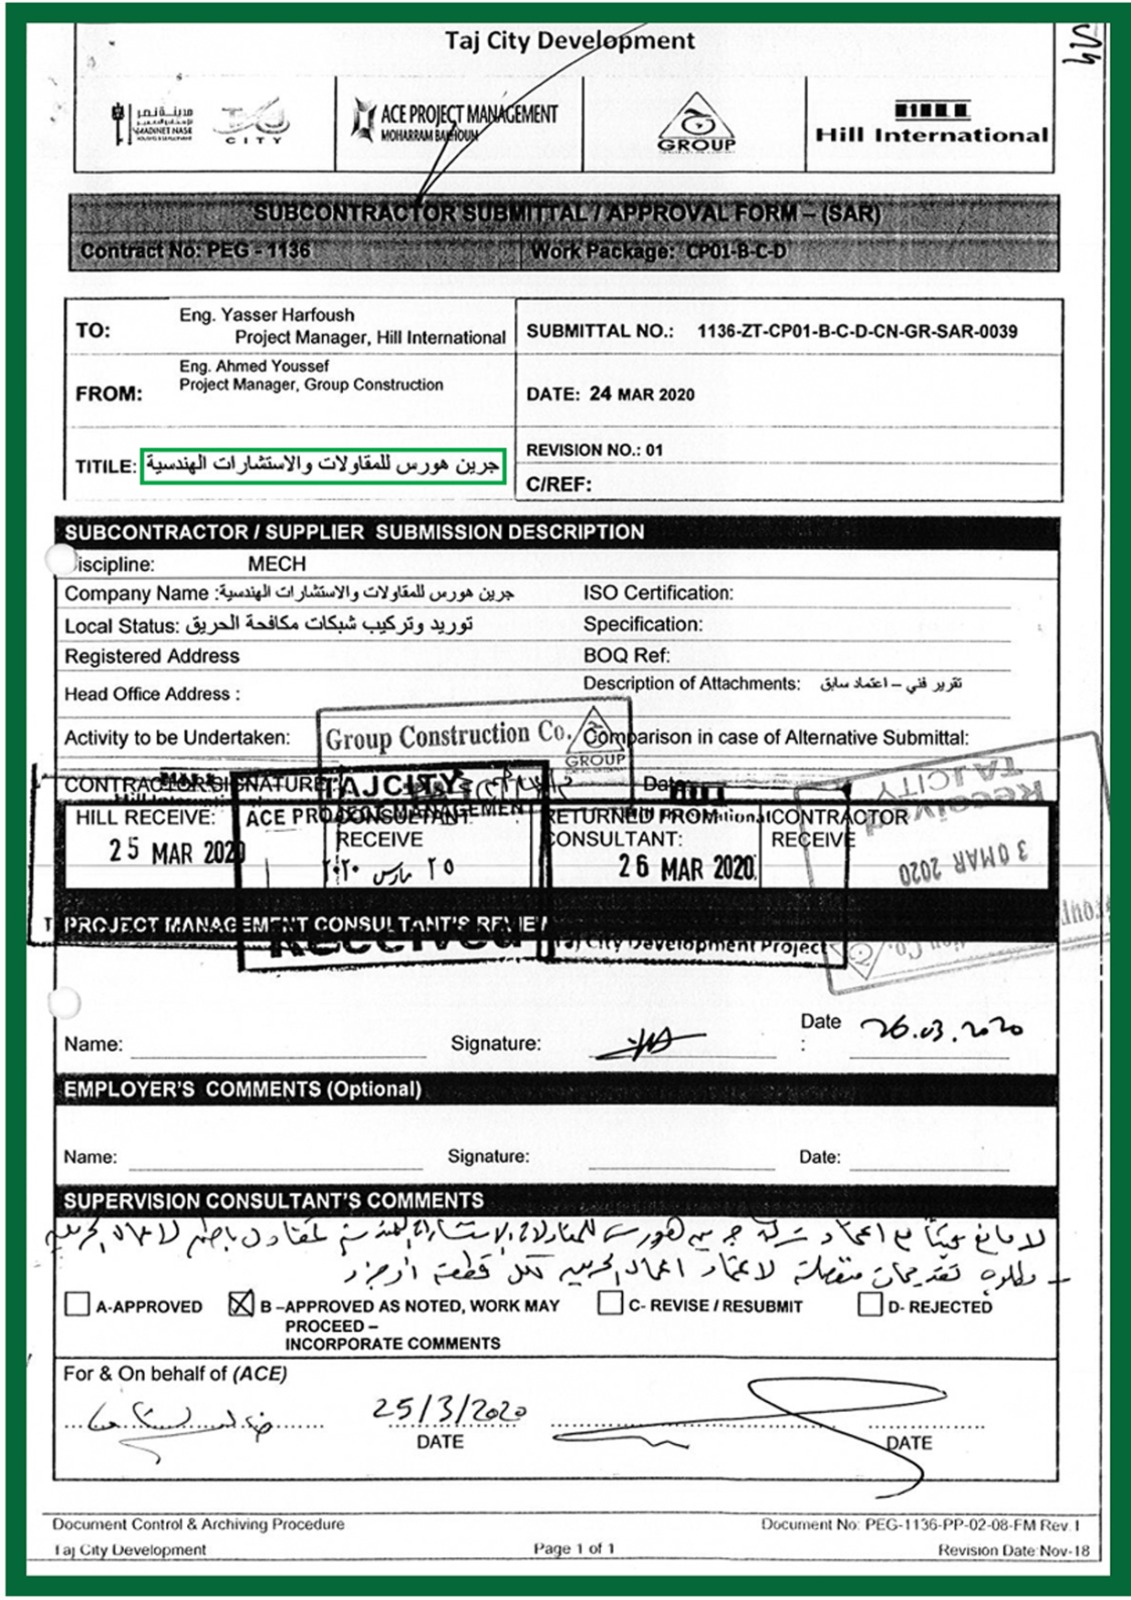 Taj City Development
مدينة نصر
MADINET NASR
CITY
ACE PROJECT MANAGEMENT
MOHARRAM BAKHOUM
GROUP
HILL
Hill International
SUBCONTRACTOR SUBMITTAL / APPROVAL FORM – (SAR)
Contract No: PEG - 1136
Work Package: CP01-B-C-D
TO:
Eng. Yasser Harfoush
Project Manager, Hill International
SUBMITTAL NO.: 1136-ZT-CP01-B-C-D-CN-GR-SAR-0039
FROM:
Eng. Ahmed Youssef
Project Manager, Group Construction
DATE: 24 MAR 2020
TITILE: جرين هورس للمقاولات والاستشارات الهندسية
REVISION NO.: 01
C/REF:
SUBCONTRACTOR / SUPPLIER SUBMISSION DESCRIPTION
iscipline: MECH
Company Name: جرين هورس للمقاولات والاستشارات الهندسية
ISO Certification:
Local Status: توريد وتركيب شبكات مكافحة الحريق
Specification:
Registered Address
BOQ Ref:
Head Office Address :
Description of Attachments: تقرير فني – اعتماد سابق
Activity to be Undertaken:
Group Construction Co.
GROUP
Comparison in case of Alternative Submittal:
CONTRACTOR SIGNATURE:
TAJCITY
Date:
HILL RECEIVE:
25 MAR 2020
ACE PROJECT MANAGEMENT
CONSULTANT
RECEIVE
٢٥ مارس ٢٠٢٠
RETURNED FROM
CONSULTANT:
26 MAR 2020
CONTRACTOR
RECEIVE
Received
TAJCITY
30 MAR 2020
PROJECT MANAGEMENT CONSULTANT'S REVIEW
Received
Taj City Development Project
Name:
Signature:
Date
:
26.03.2020
EMPLOYER'S COMMENTS (Optional)
Name:
Signature:
Date:
SUPERVISION CONSULTANT'S COMMENTS
لا مانع من اعتماد شركة جرين هورس للمقاولات والاستشارات الهندسية كمقاول باطن لاعمال الحريق
- مطلوب تقديمات منفصلة لاعتماد اعمال الحريق لكل قطعة او جزء
A-APPROVED
B –APPROVED AS NOTED, WORK MAY
PROCEED –
INCORPORATE COMMENTS
C- REVISE / RESUBMIT
D- REJECTED
For & On behalf of (ACE)
25/3/2020
DATE
DATE
Document Control & Archiving Procedure
Document No: PEG-1136-PP-02-08-FM Rev.1
Taj City Development
Page 1 of 1
Revision Date: Nov-18